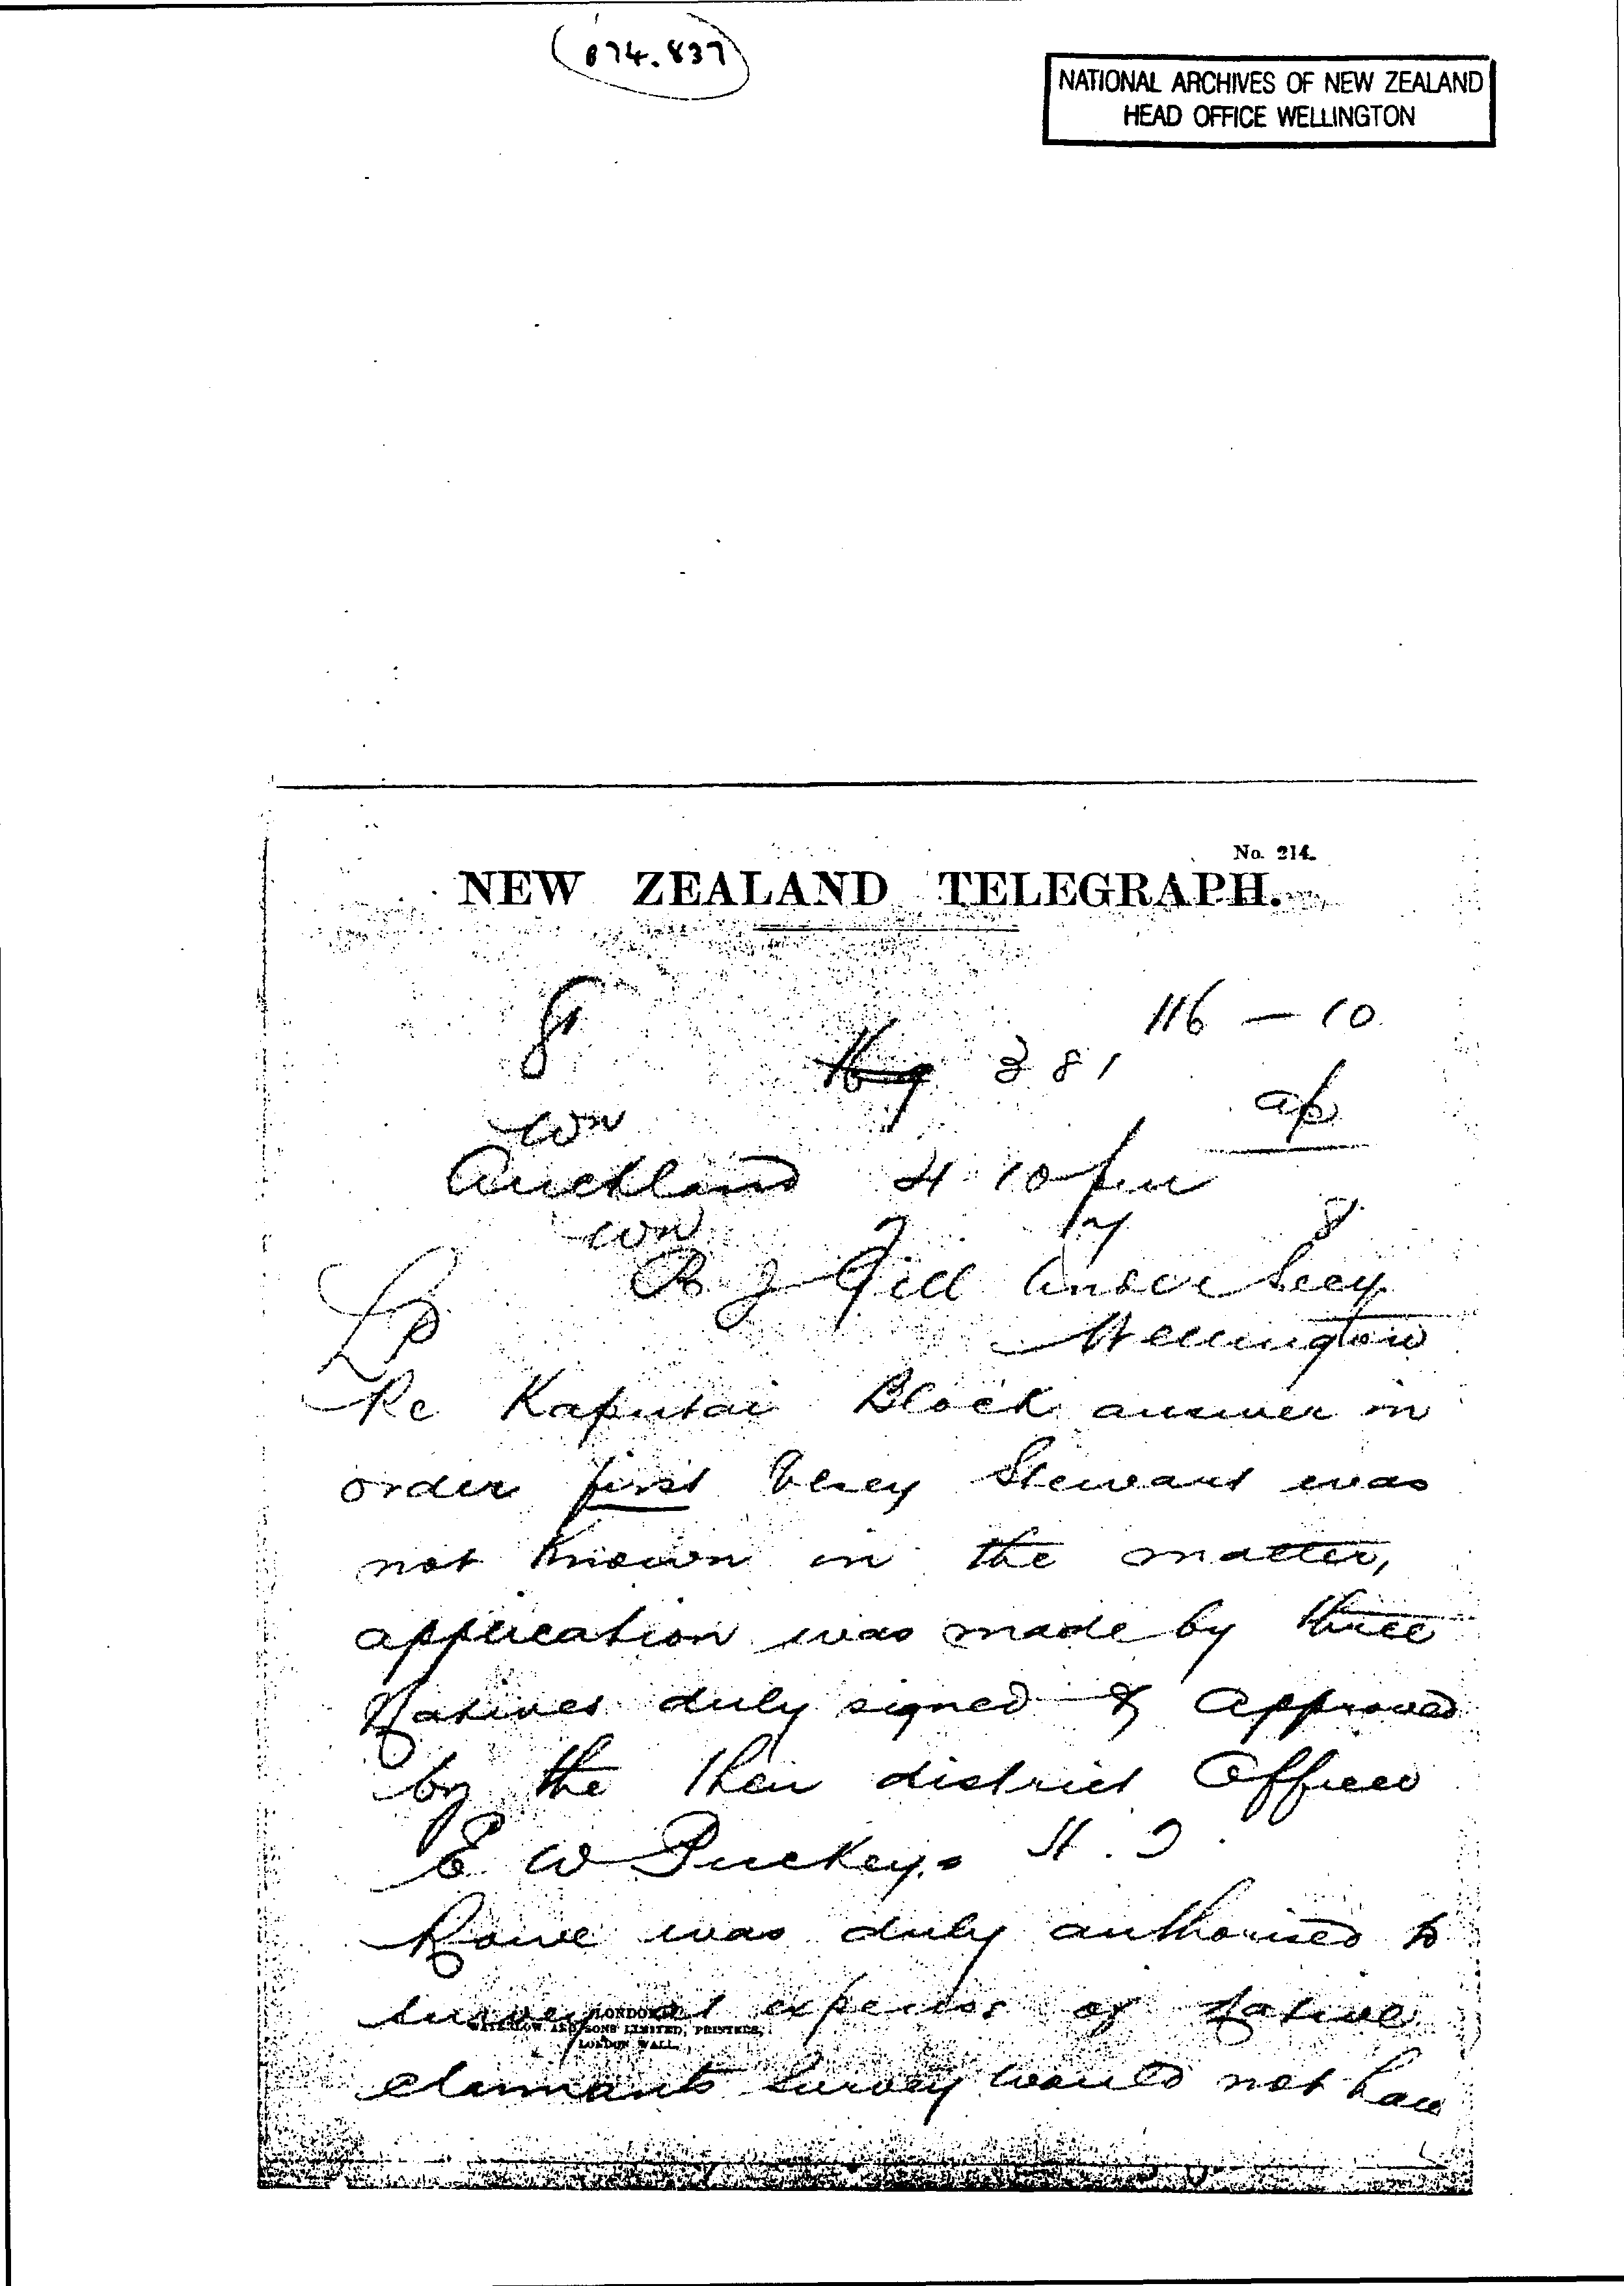 074.837
NATIONAL ARCHIVES OF NEW ZEALAND
HEAD OFFICE WELLINGTON
No. 214.
NEW ZEALAND TELEGRAPH.
116 – 10
381
wn
Auckland 4 10 pm
wn 17 8
R J Gill Under Secy
Wellington
Re Kaputai Block answer in
order first Stewart was
not known in the matter,
application was made by three
Natives duly signed & approved
by the then district Officer
E W Puckey.
Rowe was duly authorised to
survey at expense of native
LONDON
WATERLOW AND SONS LIMITED, PRINTERS,
LONDON WALL.
claimants survey would not have